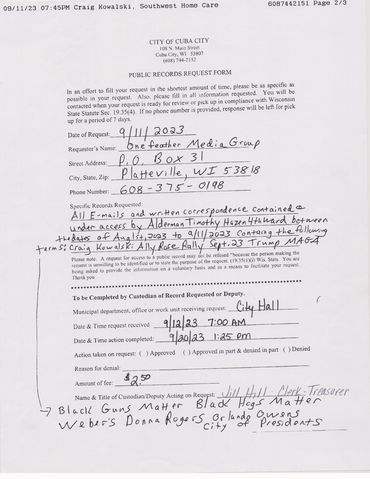 09/11/23 07:45PM Craig Kowalski, Southwest Home Care 6087442151 Page 2/3
CITY OF CUBA CITY
108 N. Main Street
Cuba City, WI 53807
(608) 744-2152
PUBLIC RECORDS REQUEST FORM
In an effort to fill your request in the shortest amount of time, please be as specific as
possible in your request. Also, please fill in all information requested. You will be
contacted when your request is ready for review or pick up in compliance with Wisconsin
State Statute Sec. 19.35(4). If no phone number is provided, response will be left for pick
up for a period of 7 days.
Date of Request: 9/11/2023
Requester's Name: Onefeather Media Group
Street Address: P.O. Box 31
City, State, Zip: Platteville, WI 53818
Phone Number: 608-375-0198
Specific Records Requested:
All E-mails and written correspondence contained &
under access by Alderman Timothy Hazen 4th ward between
the dates of Aug 1st, 2023 to 9/11/2023 Containg the following
terms: Craig Kowalski Ally Rose Rally Sept. 23 Trump MAGA
Please note. A request for access to a public record may not be refused "because the person making the
request is unwilling to be identified or to state the purpose of the request. (19.35(1)(i) Wis. Stats. You are
being asked to provide the information on a voluntary basis and as a means to facilitate your request.
Thank you
To be Completed by Custodian of Record Requested or Deputy.
Municipal department, office or work unit receiving request: City Hall
Date & Time request received: 9/12/23 7:00 AM
Date & Time action completed: 9/20/23 1:25 pm
Action taken on request: ( ) Approved ( ) Approved in part & denied in part ( ) Denied
Reason for denial:
Amount of fee: $2.50
Name & Title of Custodian/Deputy Acting on Request: Jill Hill - Clerk-Treasurer
Black Guns Matter Black Hogs Matter
Weber's Donna Rogers Orlando Owens
City of Presidents